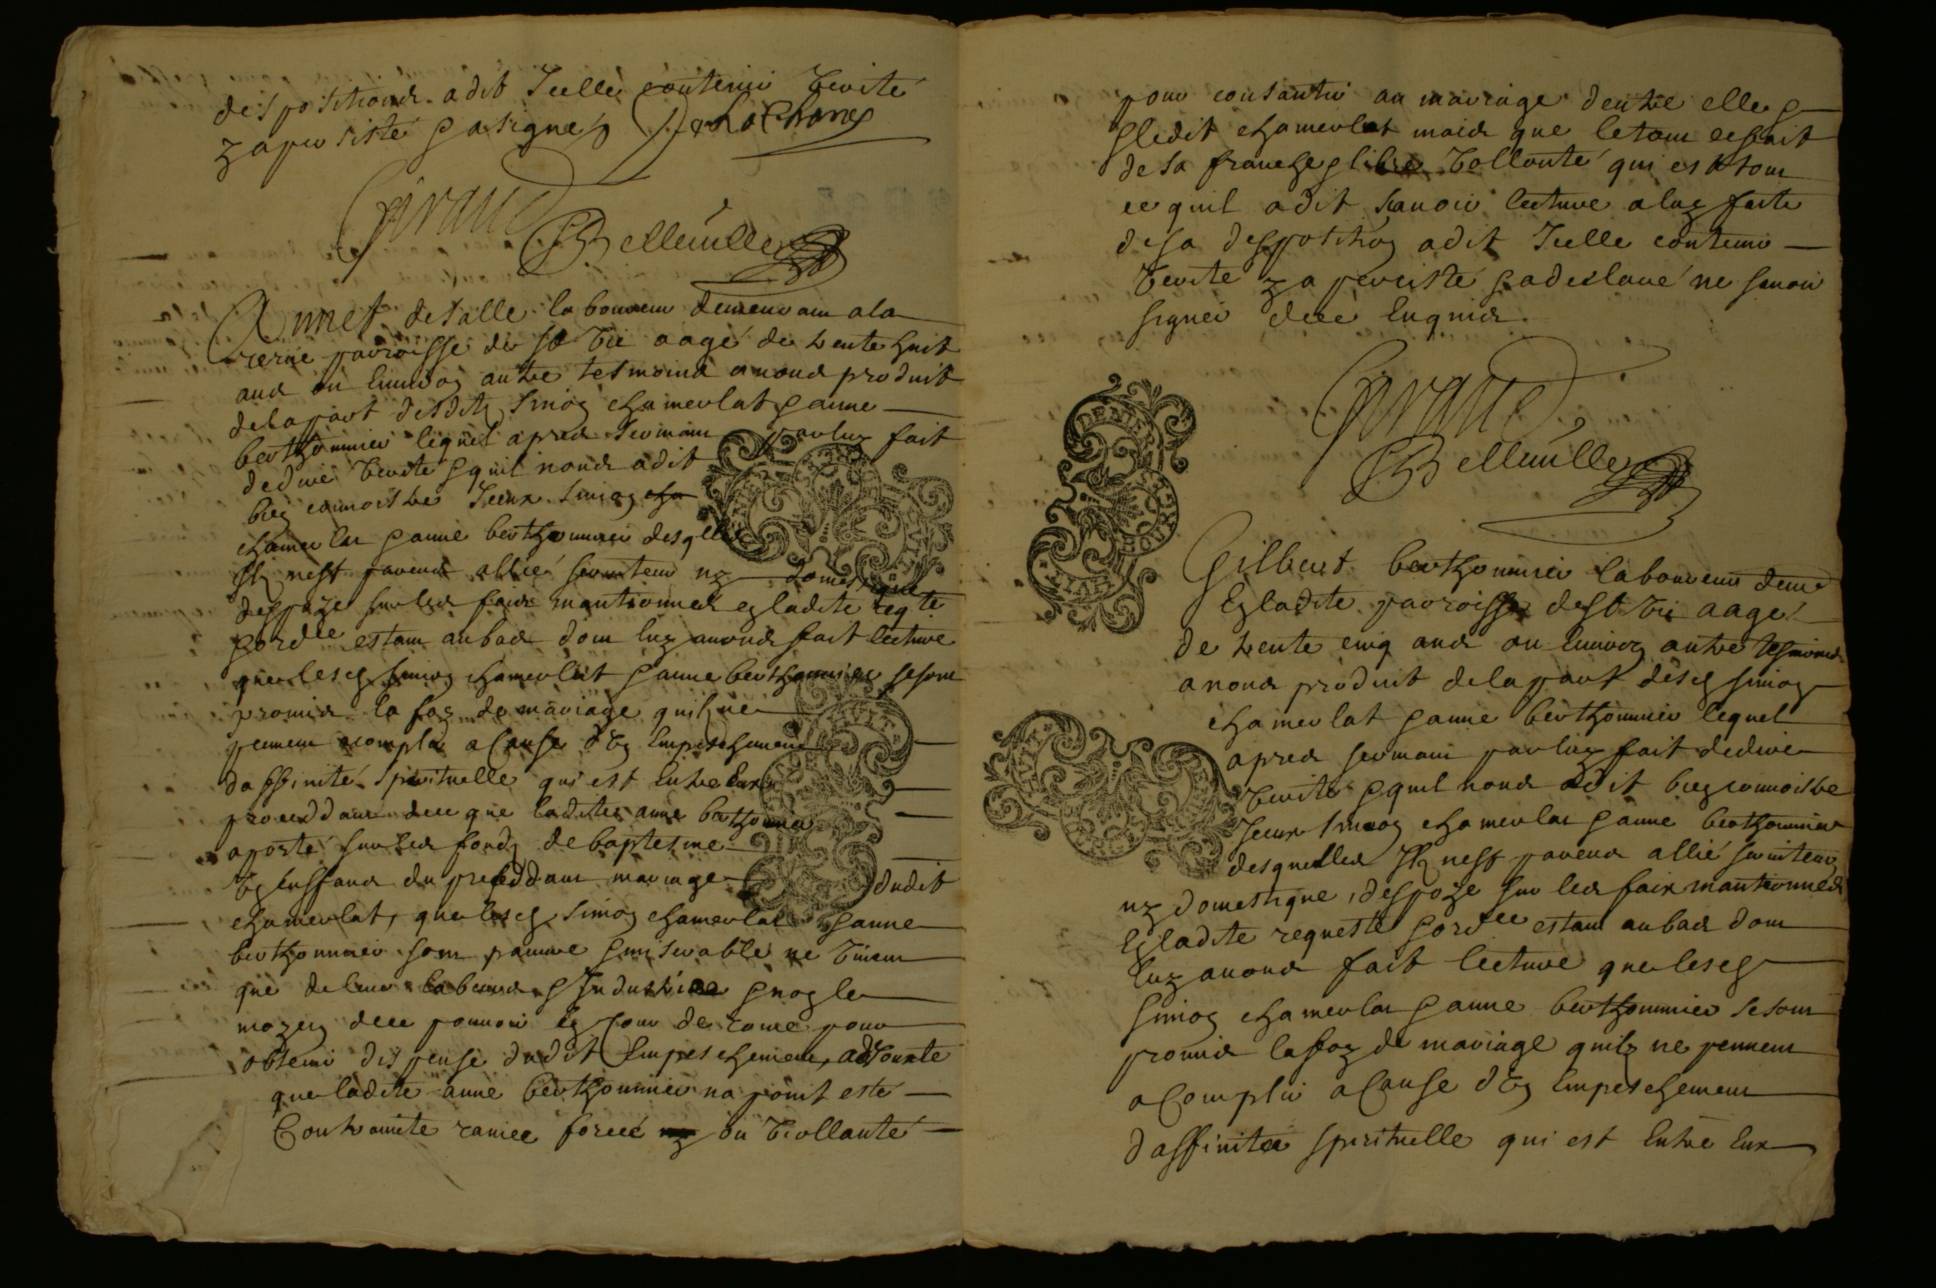 despositions a dit Icelle contenir verité
y a persisté & a signé Delachone
Giraud
Belleville
Annet desalle laboureur demeurant a la
paroisse de St aagé de trente huit
ans ou Environ autre tesmoind a nous produit
de la part desdits Simon chamerlat & anne
berthonnier lequel apres sermant par luy fait
de dire verité & quil nous a dit
bien connoistre Iceux Simon cha
chamerlat & anne berthonnier desquelles
Il nest parend allié serviteur ny domestique
despoze sur les fais mantionnes en ladite reqte
& ordce estant au bas dont luy avons fait lecture
que lesd Simon chamerlat & anne berthonnier se sont
promis la foy de mariage quilz ne
peuvent acomplir a Cause dun Empeschement
daffinité spirituelle qui est Entre Eux
proceddant de ce que ladite anne berthonnier
a porté sur les fondz de baptesme
un Enffand du preceddant mariage dudit
chamerlat, que lesd Simon chamerlat & anne
berthonnier sont pauvre & miserable ne vivent
que de leur labeurs & Industrie & nont le
moyen de se pourvoir en Cour de rome pour
obtenir dispense dudit Empeschement, adjouxte
que ladite anne berthonnier na point esté
Contrainte raviee forcée ny ou viollanté
pour consantir au mariage dentre elle &
& ledit chamerlat mais que le tout ce fait
de sa franche & libre vollonté qui est tout
ce quil a dit scavoir lecture a luy faite
de sa desposition a dit Icelle contenir
verité y a percisté & a desclaré ne scavoir
signer de ce Enquis
Giraud
Belleville
Gilbert berthonnier laboureur demt
En ladite paroisse de St aagé
de trente cinq ans ou Environ autre tesmoind
a nous produit de la part desd Simon
chamerlat & anne berthonnier lequel
apres sermant par luy fait de dire
verité & quil nous a dit bien connoistre
Iceux Simon chamerlat & anne berthonnier
desquelles Il nest parend allié serviteur
ny domestique, despoze sur les faix mantionnes
En ladite requeste & ordce estant au bas dont
luy avons fait lecture que lesd
Simon chamerlat & anne berthonnier se sont
promis la foy de mariage quilz ne peuvent
aComplir a Cause dun Empeschement
daffinitée spirituelle qui est Entre Eux